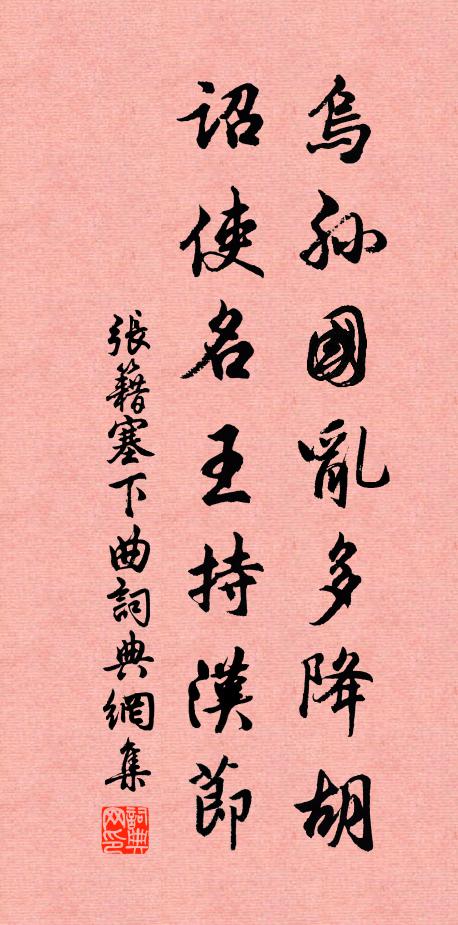 烏孫國亂多降胡
詔使名王持漢節
張籍塞下曲詞典網集
詞典網印